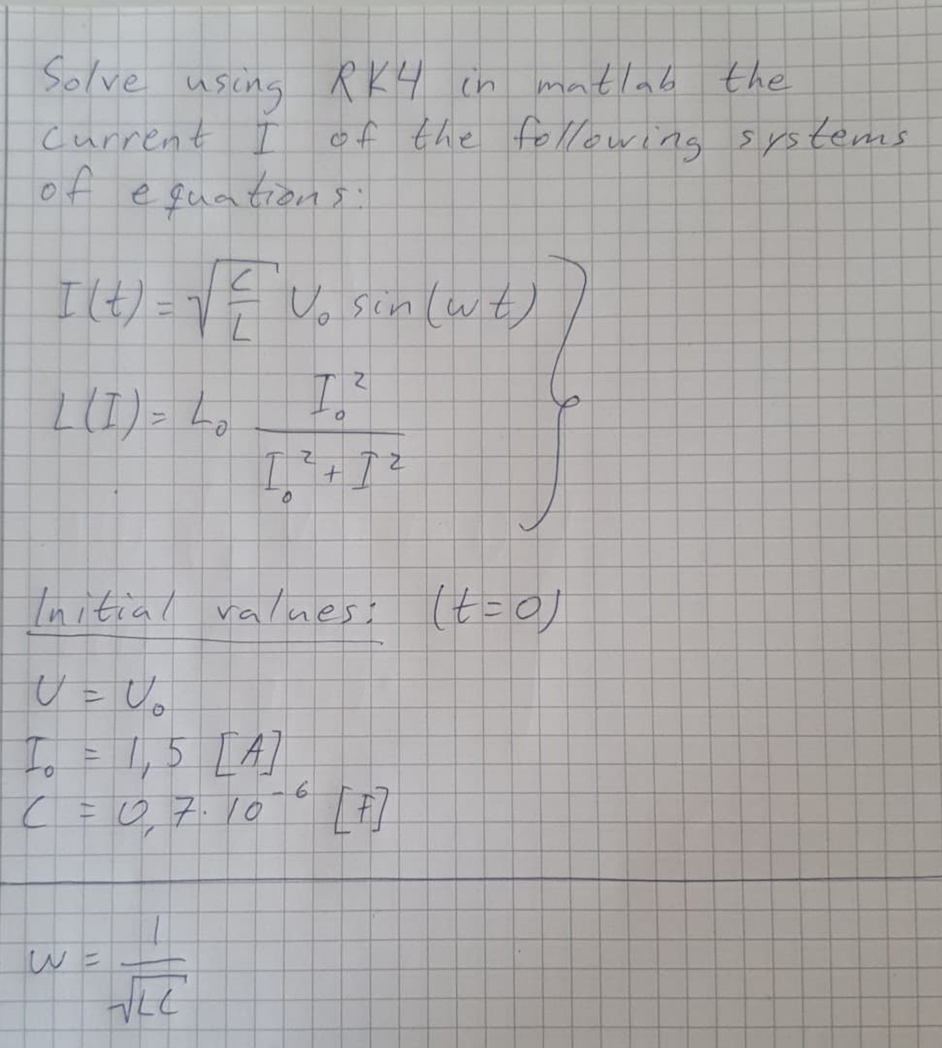 Solve using RK4 in matlab the
current I of the following systems
of equations:
I(t) = √(C/L) U₀ sin(wt)
L(I) = L₀ I₀² / (I₀² + I²)
Initial values: (t=0)
U = U₀
I₀ = 1,5 [A]
C = 0,7·10⁻⁶ [F]
w = 1/√(LC)